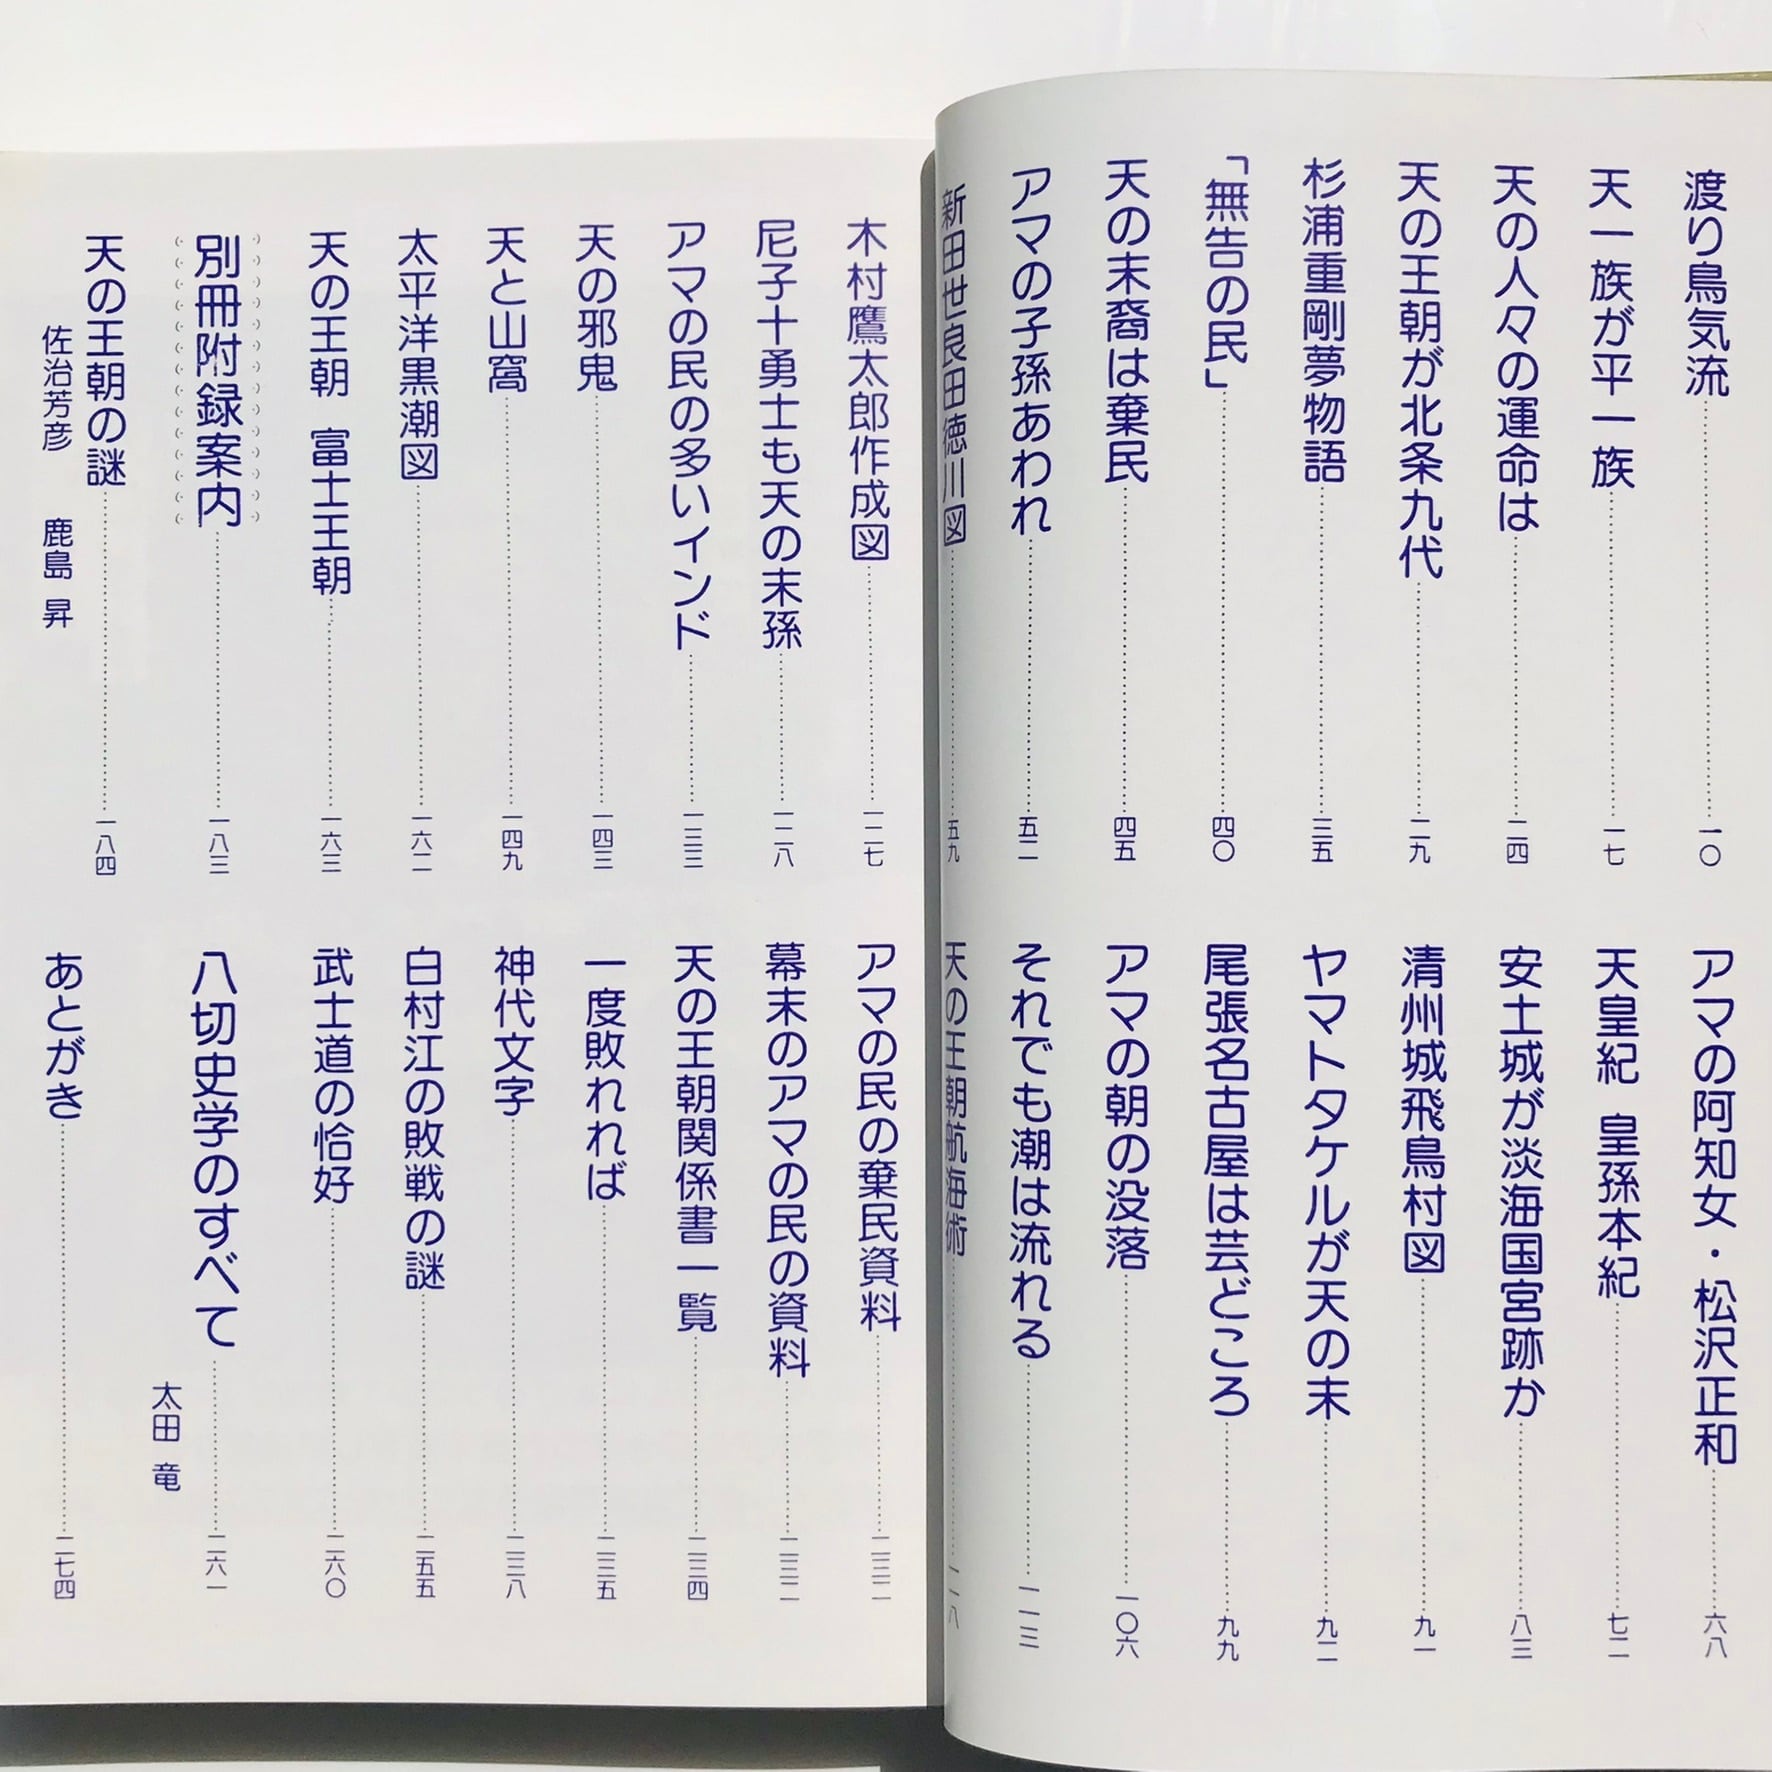 渡り鳥気流……一〇
天一族が平一族……一七
天の人々の運命は……二四
天の王朝が北条九代……二九
杉浦重剛夢物語……三五
「無告の民」……四〇
天の末裔は棄民……四五
アマの子孫あわれ……五二
新田世良田徳川図……五九
アマの阿知女・松沢正和……六八
天皇紀 皇孫本紀……七二
安土城が淡海国宮跡か……八三
清州城飛鳥村図……九一
ヤマトタケルが天の末……九二
尾張名古屋は芸どころ……九九
アマの朝の没落……一〇六
それでも潮は流れる……一一三
天の王朝航海術……一一八
木村鷹太郎作成図……一二七
尼子十勇士も天の末孫……一二八
アマの民の多いインド……一三三
天の邪鬼……一四三
天と山窩……一四九
太平洋黒潮図……一六二
天の王朝 富士王朝……一六三
別冊附録案内……一八三
天の王朝の謎……一八四
佐治芳彦 鹿島 昇
アマの民の棄民資料……
幕末のアマの民の資料……
天の王朝関係書一覧……二三四
一度敗れれば……二三五
神代文字……二三八
白村江の敗戦の謎……二五五
武士道の恰好……二六〇
八切史学のすべて……二六一
太田 竜
あとがき……二七四